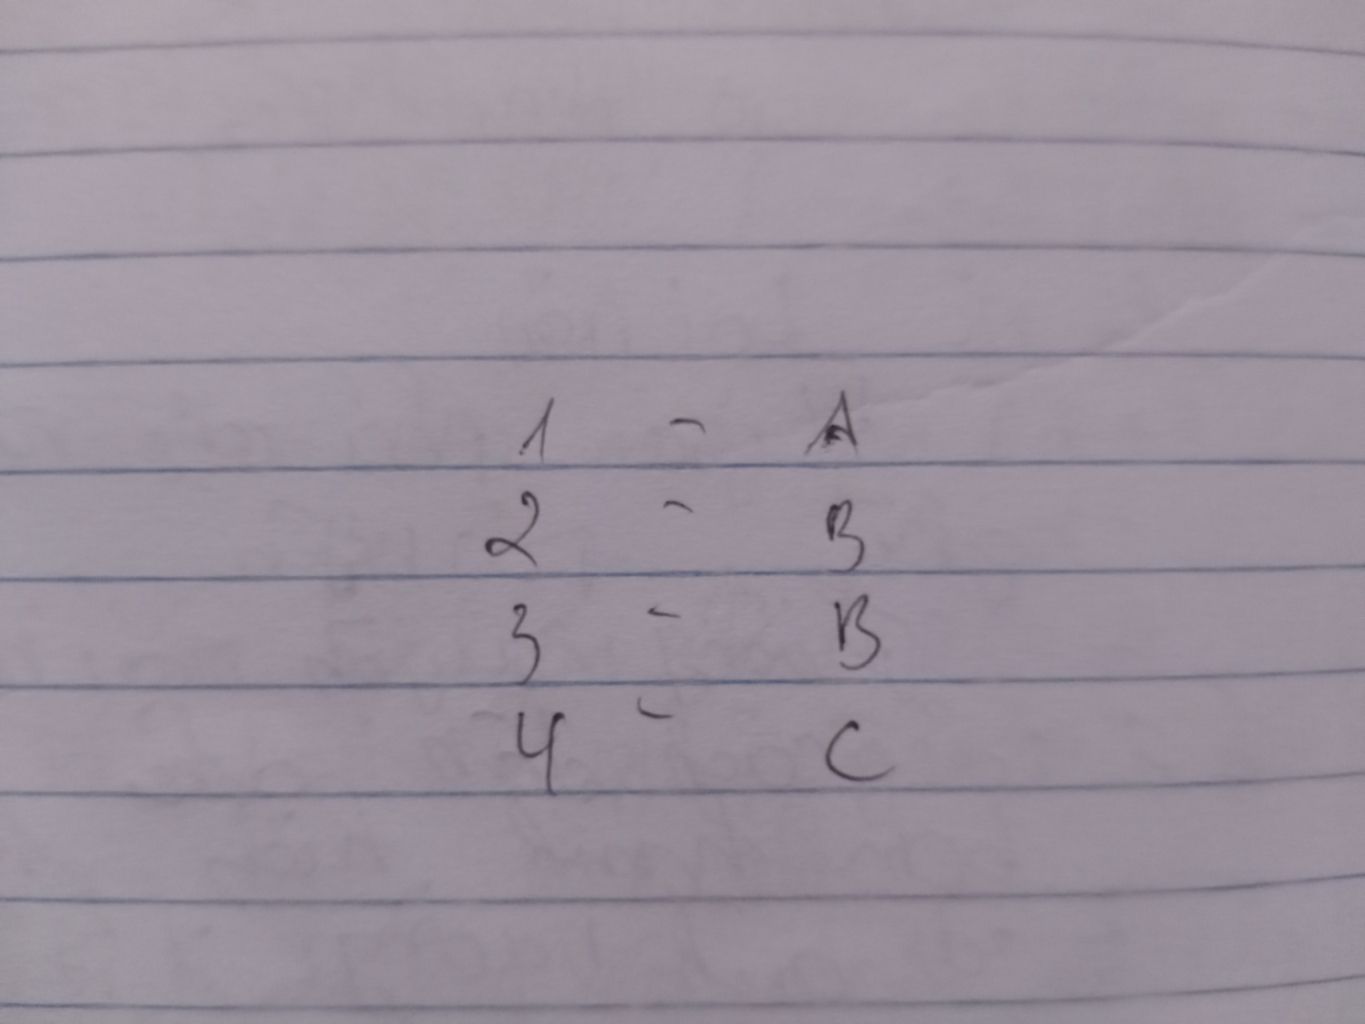 1 - A
2 - B
3 - B
4 - C